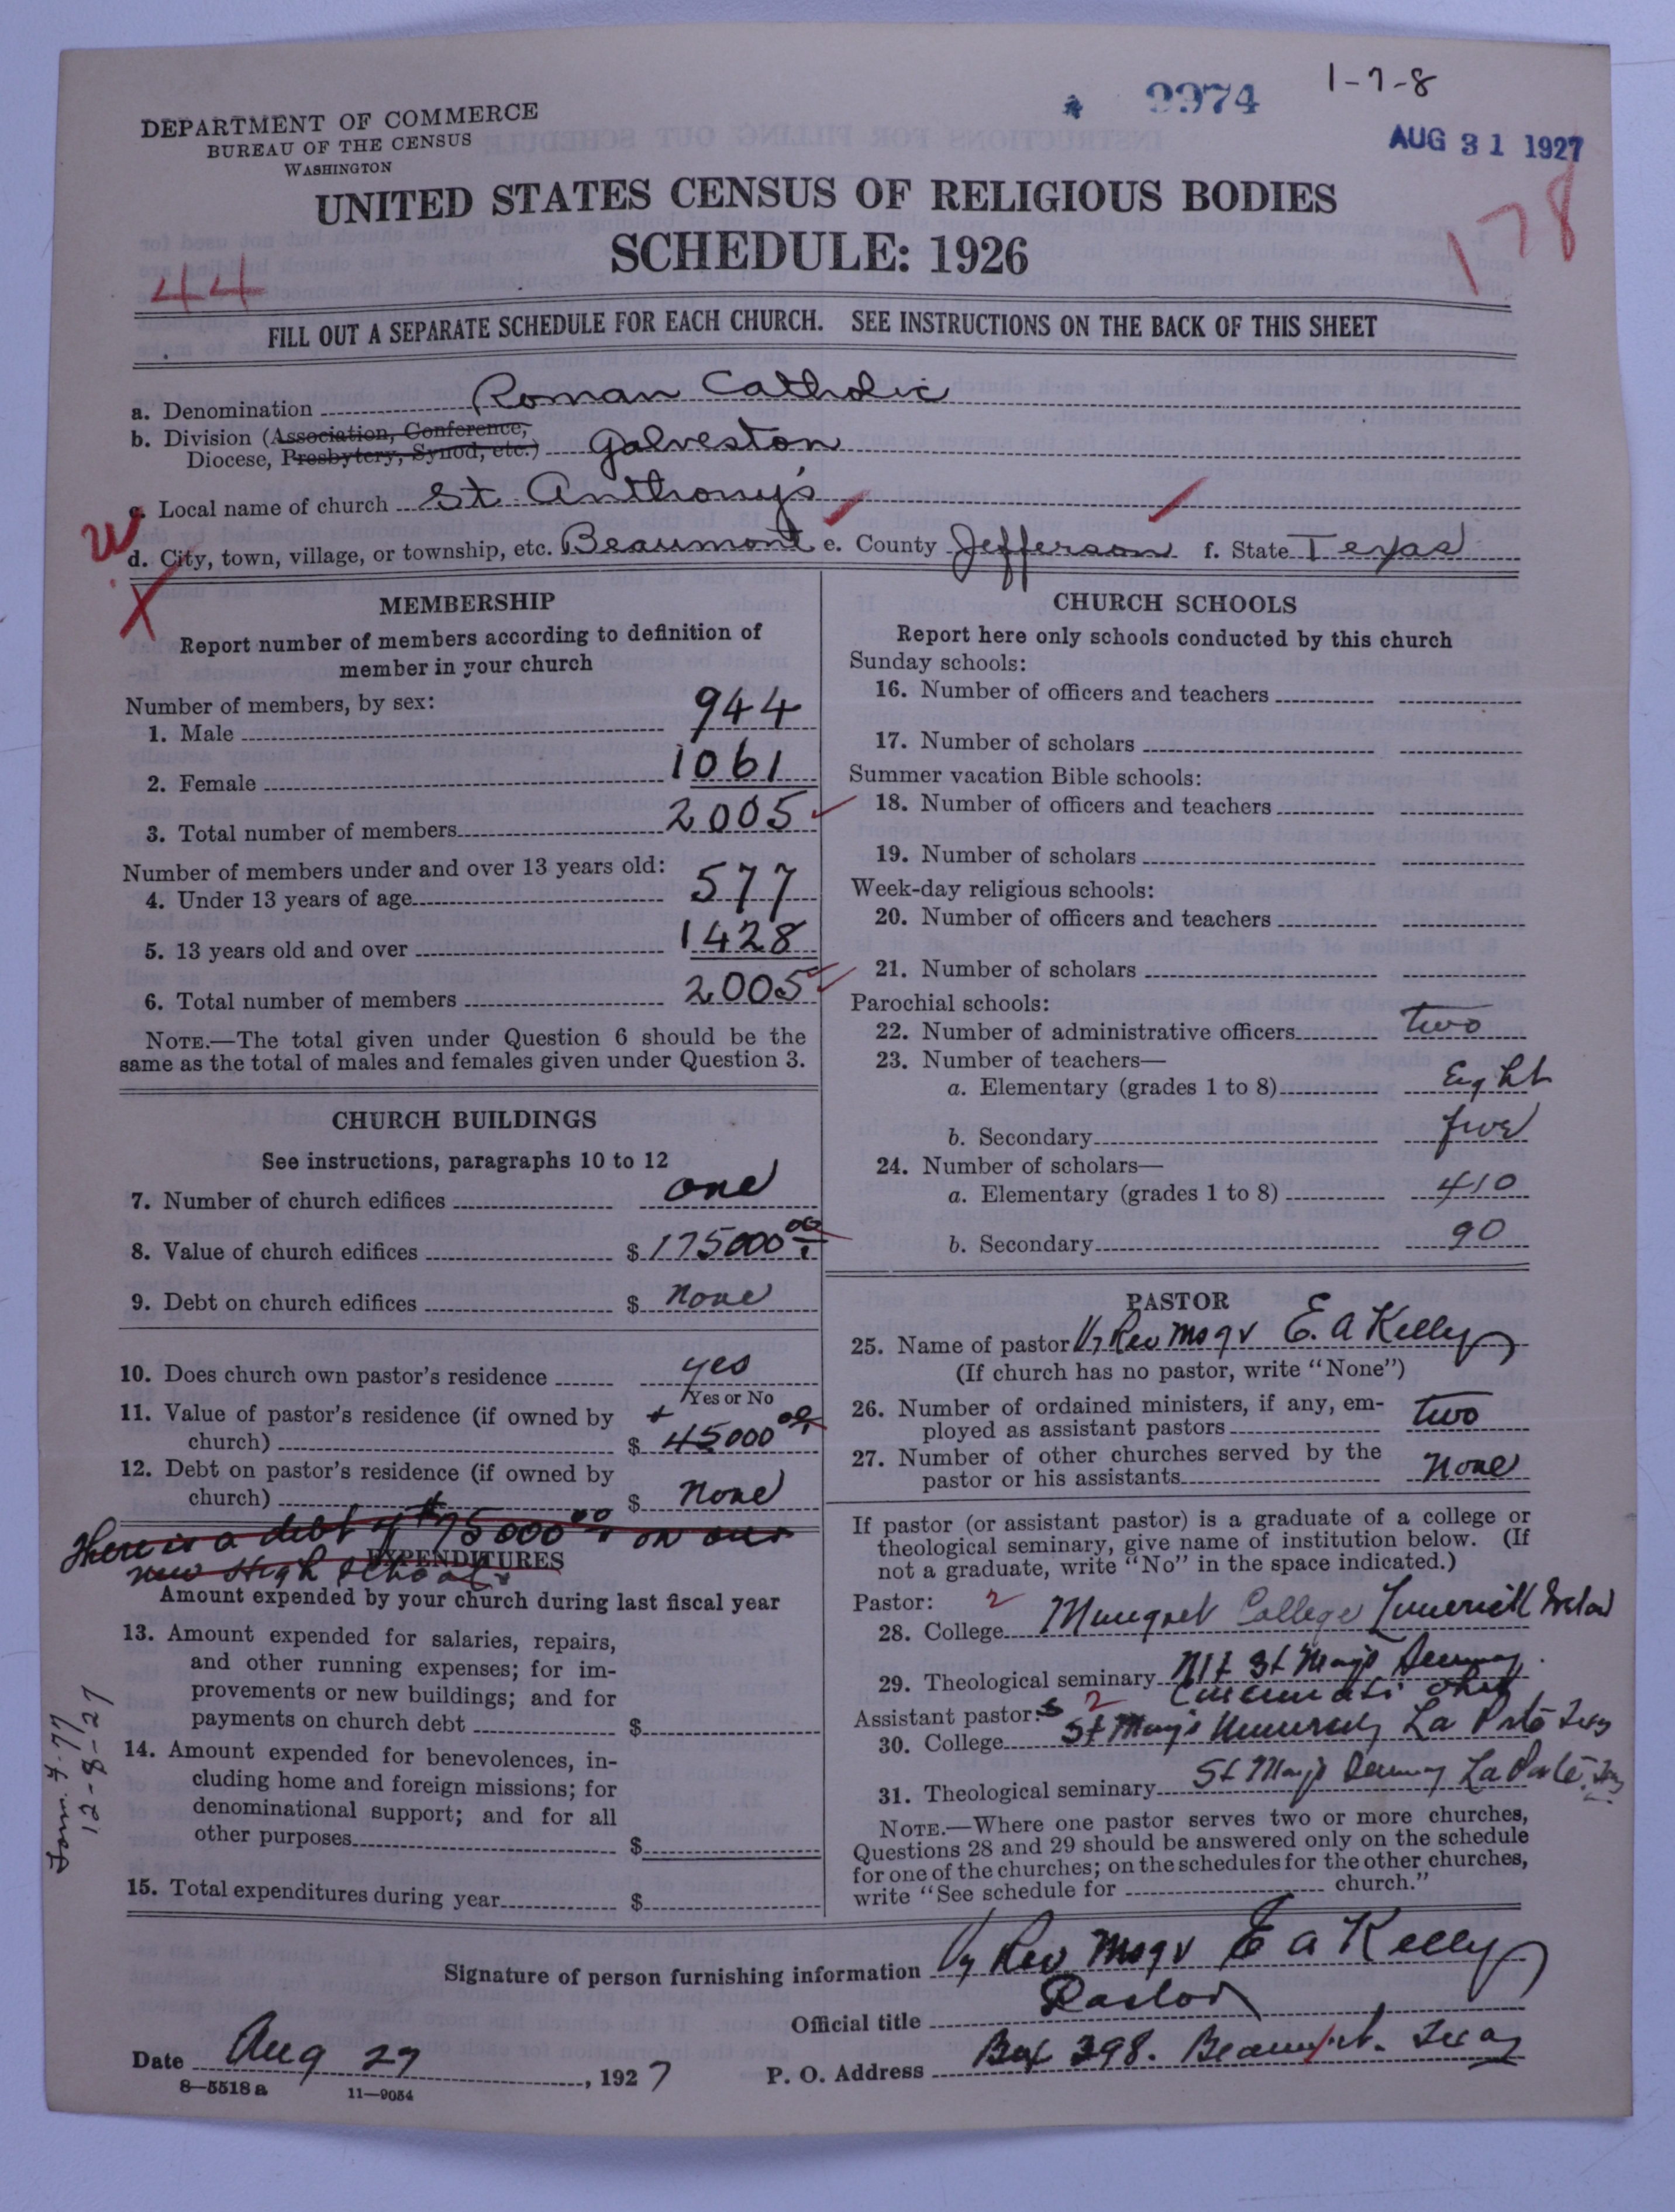 9974
1-7-8
AUG 31 1927
DEPARTMENT OF COMMERCE
BUREAU OF THE CENSUS
WASHINGTON
UNITED STATES CENSUS OF RELIGIOUS BODIES
SCHEDULE: 1926
44
178
FILL OUT A SEPARATE SCHEDULE FOR EACH CHURCH. SEE INSTRUCTIONS ON THE BACK OF THIS SHEET
a. Denomination Roman Catholic
b. Division (Association, Conference,
Diocese, Presbytery, Synod, etc.) Galveston
c. Local name of church St. Anthony's
d. City, town, village, or township, etc. Beaumont e. County Jefferson f. State Texas
MEMBERSHIP
Report number of members according to definition of
member in your church
Number of members, by sex:
1. Male 944
2. Female 1061
3. Total number of members 2005
Number of members under and over 13 years old:
4. Under 13 years of age 577
5. 13 years old and over 1428
6. Total number of members 2005
NOTE.—The total given under Question 6 should be the
same as the total of males and females given under Question 3.
CHURCH BUILDINGS
See instructions, paragraphs 10 to 12
7. Number of church edifices one
8. Value of church edifices $ 175000 00
9. Debt on church edifices $ none
10. Does church own pastor's residence yes
Yes or No
11. Value of pastor's residence (if owned by
church) $ 45000 00
12. Debt on pastor's residence (if owned by
church) $ none
There is a debt of $75000 00 on our
new High School
EXPENDITURES
Amount expended by your church during last fiscal year
13. Amount expended for salaries, repairs,
and other running expenses; for im-
provements or new buildings; and for
payments on church debt $
14. Amount expended for benevolences, in-
cluding home and foreign missions; for
denominational support; and for all
other purposes $
15. Total expenditures during year $
12-8-27
CHURCH SCHOOLS
Report here only schools conducted by this church
Sunday schools:
16. Number of officers and teachers
17. Number of scholars
Summer vacation Bible schools:
18. Number of officers and teachers
19. Number of scholars
Week-day religious schools:
20. Number of officers and teachers
21. Number of scholars
Parochial schools:
22. Number of administrative officers two
23. Number of teachers—
a. Elementary (grades 1 to 8) Eight
b. Secondary five
24. Number of scholars—
a. Elementary (grades 1 to 8) 410
b. Secondary 90
PASTOR
25. Name of pastor Vy Rev Msgr E. A Kelly
(If church has no pastor, write "None")
26. Number of ordained ministers, if any, em-
ployed as assistant pastors two
27. Number of other churches served by the
pastor or his assistants none
If pastor (or assistant pastor) is a graduate of a college or
theological seminary, give name of institution below. (If
not a graduate, write "No" in the space indicated.)
Pastor: 2
28. College Mungret College Limerick Ireland
29. Theological seminary Mt St Mary's Seminary
Cincinnati Ohio
Assistant pastor:s 2
30. College St Mary's University La Porte Texas
31. Theological seminary St Mary's Seminary La Porte. Tex
NOTE.—Where one pastor serves two or more churches,
Questions 28 and 29 should be answered only on the schedule
for one of the churches; on the schedules for the other churches,
write "See schedule for church."
Signature of person furnishing information Vy Rev Msgr E A Kelly
Official title Pastor
Date Aug 27, 1927 P. O. Address Box 398. Beaumont. Texas
8—5518a 11—9054